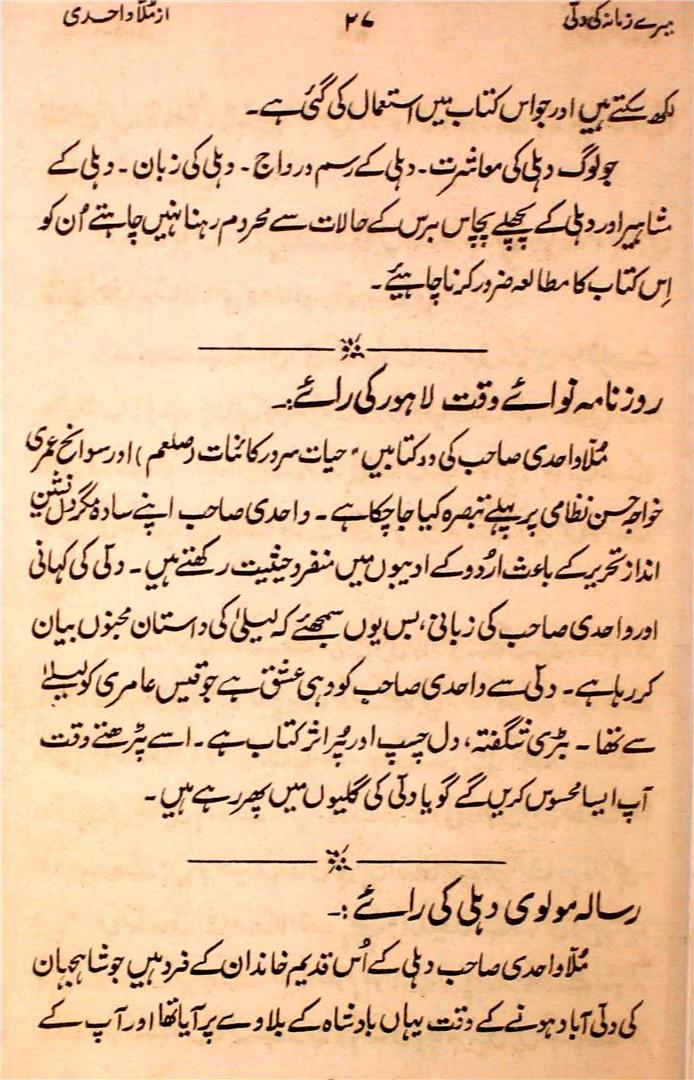 میرے زمانہ کی دلّی ۲۷ از مُلّا واحدی
لکھ سکتے ہیں اور جو اس کتاب میں استعمال کی گئی ہے۔
جو لوگ دہلی کی معاشرت۔ دہلی کے رسم و رواج۔ دہلی کی زبان۔ دہلی کے
مشاہیر اور دہلی کے پچھلے پچاس برس کے حالات سے محروم رہنا نہیں چاہتے اُن کو
اِس کتاب کا مطالعہ ضرور کرنا چاہیئے۔
روزنامہ نوائے وقت لاہور کی رائے:۔
مُلّا واحدی صاحب کی دو کتابیں "حیات سرور کائنات (صلعم) اور سوانح عمری
خواجہ حسن نظامی پر پہلے تبصرہ کیا جا چکا ہے۔ واحدی صاحب اپنے سادہ مگر دل نشین
انداز تحریر کے باعث اردو کے ادیبوں میں منفرد حیثیت رکھتے ہیں۔ دلّی کی کہانی
اور واحدی صاحب کی زبانی، بس یوں سمجھئے کہ لیلیٰ کی داستان مجنوں بیان
کر رہا ہے۔ دلّی سے واحدی صاحب کو وہی عشق ہے جو قیس عامری کو لیلےٰ
سے تھا۔ بڑی شگفتہ، دل چسپ اور پُر اثر کتاب ہے۔ اسے پڑھتے وقت
آپ ایسا محسوس کریں گے گویا دلّی کی گلیوں میں پھر رہے ہیں۔
رسالہ مولوی دہلی کی رائے:۔
مُلّا واحدی صاحب دہلی کے اُس قدیم خاندان کے فرد ہیں جو شاہجہان
کی دلّی آباد ہونے کے وقت یہاں بادشاہ کے بلاوے پر آیا تھا اور آپ کے